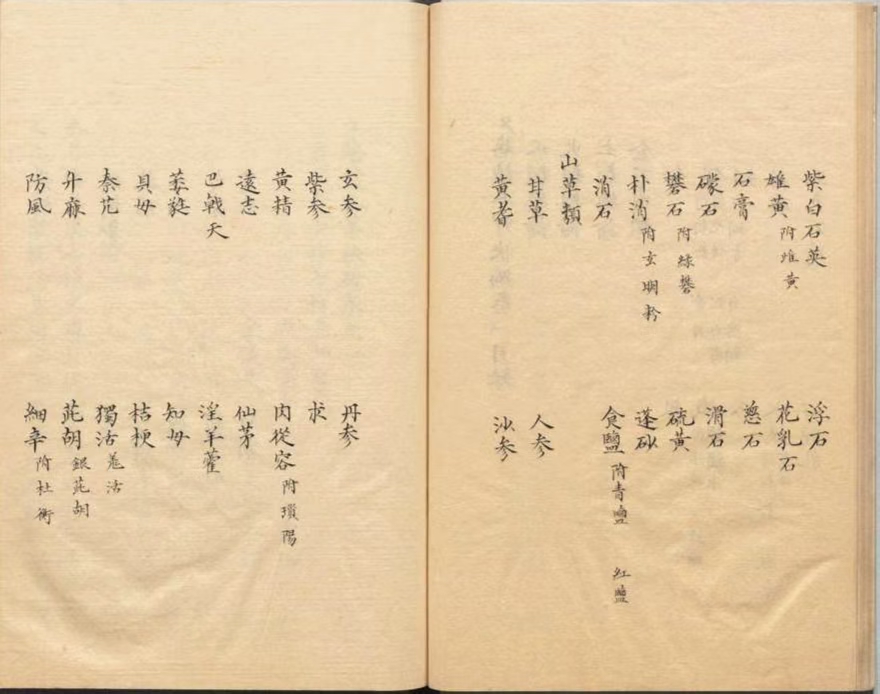 紫白石英 浮石
雄黃附雌黃 花乳石
石膏 慈石
礞石 滑石
礬石附綠礬 硫黃
朴消附玄明粉 蓬砂
消石 食鹽附青鹽 紅鹽
山草類
甘草 人參
黃耆 沙參
玄參 丹參
紫參 朮
黃精 肉從容附瑣陽
遠志 仙茅
巴戟天 淫羊藿
葳蕤 知母
貝母 桔梗
秦艽 獨活羗活
升麻 茈胡銀茈胡
防風 細辛附杜衡